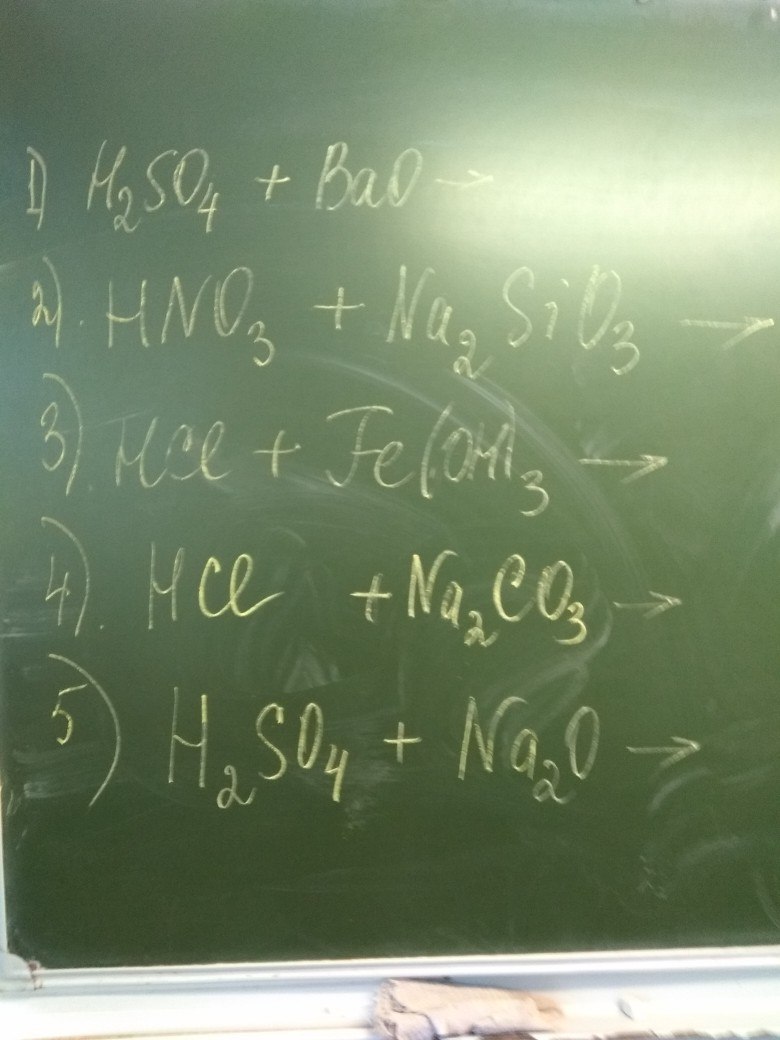 1) H₂SO₄ + BaO →
2). HNO₃ + Na₂SiO₃ →
3). HCl + Fe(OH)₃ →
4). HCl + Na₂CO₃ →
5) H₂SO₄ + Na₂O →